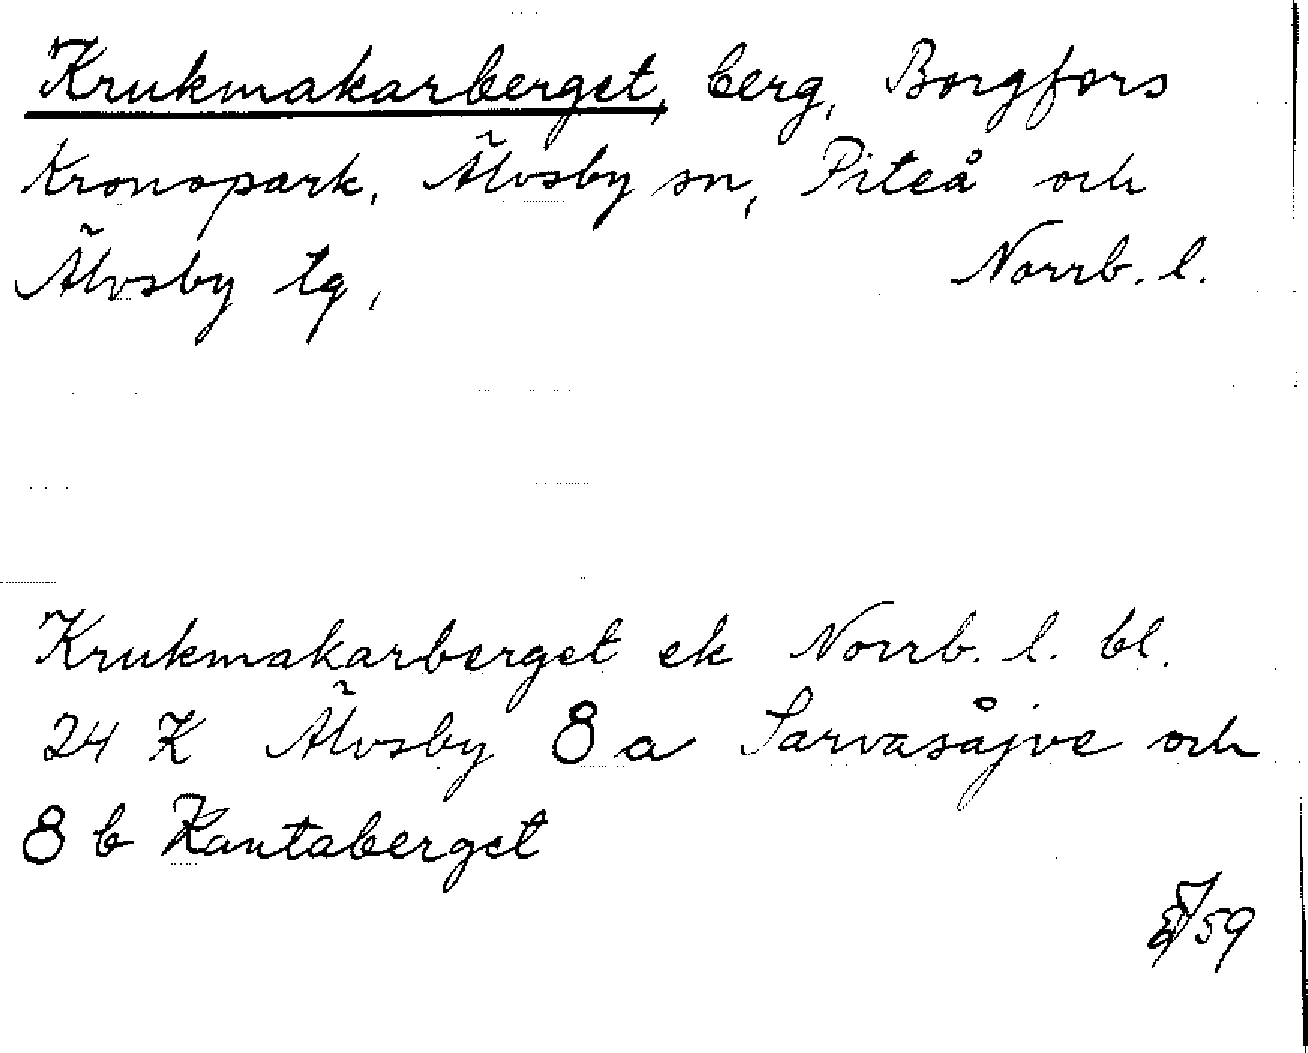 Krukmakarberget, berg, Borgfors
Kronopark, Älvsby sn, Piteå och
Älvsby tg, Norrb. l.
Krukmakarberget ek Norrb. l. bl.
24 K Älvsby 8 a Sarvasåjve och
8 b Kantaberget
/59